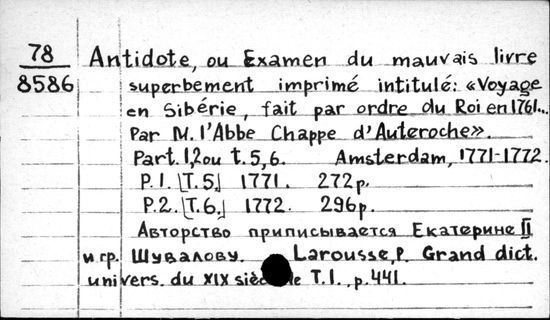 78
8586
Antidote, ou Examen du mauvais livre
superbement imprimé intitulé: «Voyage
en Sibérie, fait par ordre du Roi en 1761...
Par M. l'Abbe Chappe d'Auteroche».
Part. 1,2 ou t.5,6. Amsterdam, 1771-1772.
P.1. [T.5.] 1771. 272p.
P.2. [T.6.] 1772. 296p.
Авторство приписывается Екатерине II
и гр. Шувалову. Larousse, P. Grand dict.
univers. du XIX siècle T.1., p.441.